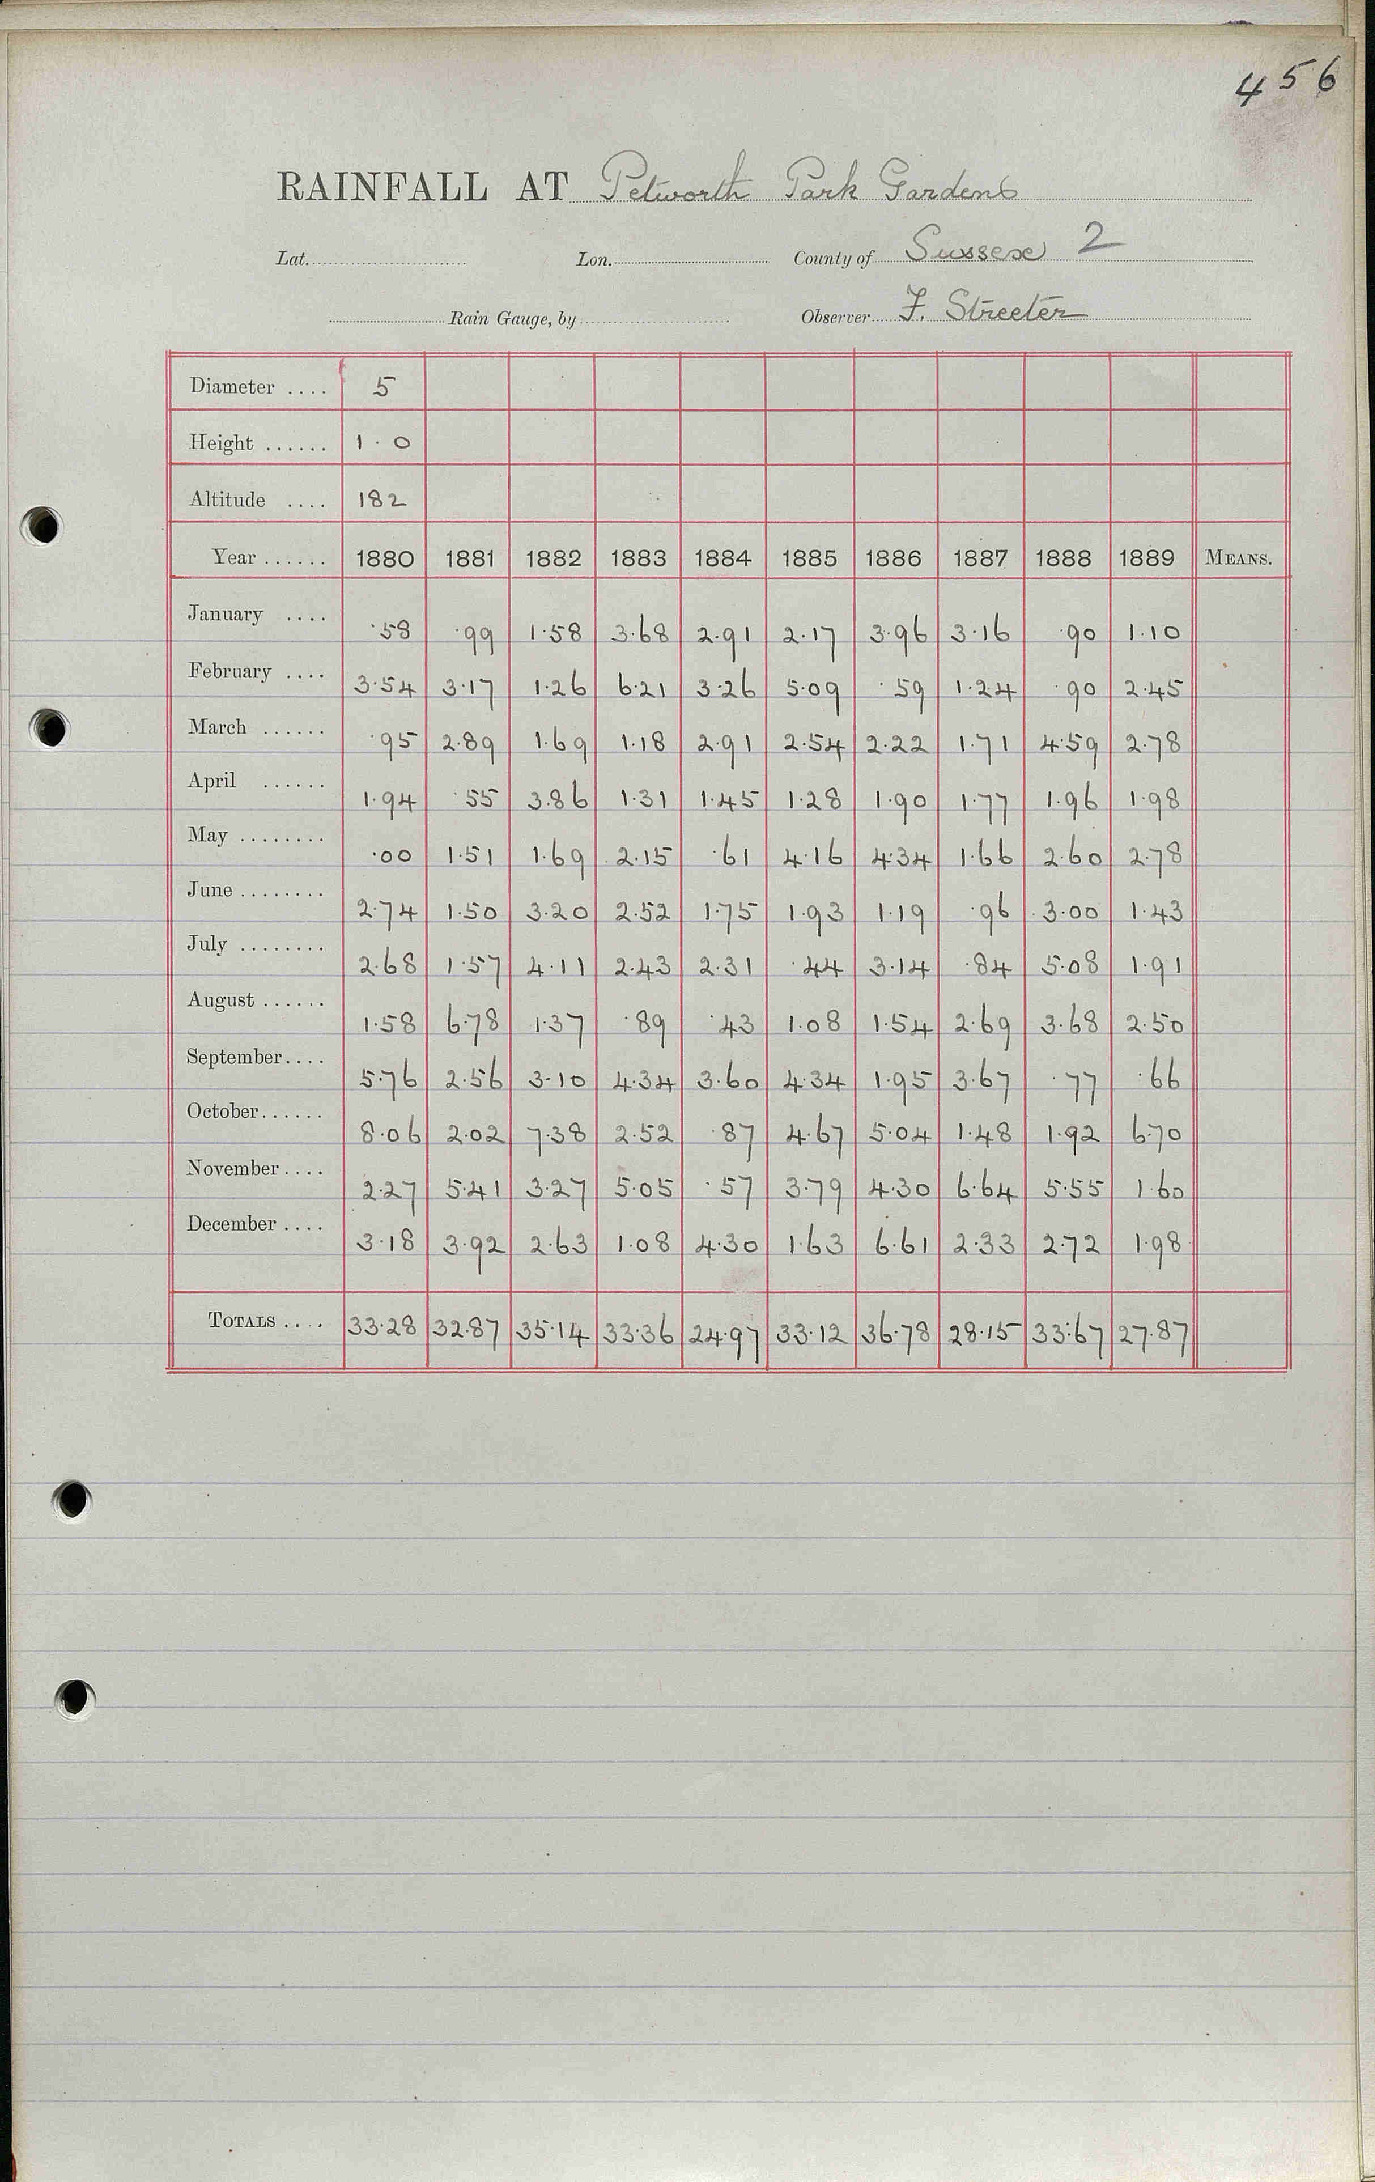 456
RAINFALL AT Petworth Park Gardens
Lat. Lon. County of Sussex 2
Rain Gauge, by Observer F. Streeter
Diameter .... 5
Height ...... 1·0
Altitude .... 182
Year ...... 1880 1881 1882 1883 1884 1885 1886 1887 1888 1889 MEANS.
January .... ·58 ·99 1·58 3·68 2·91 2·17 3·96 3·16 ·90 1·10
February .... 3·54 3·17 1·26 6·21 3·26 5·09 ·59 1·24 ·90 2·45
March ...... ·95 2·89 1·69 1·18 2·91 2·54 2·22 1·71 4·59 2·78
April ...... 1·94 ·55 3·86 1·31 1·45 1·28 1·90 1·77 1·96 1·98
May ........ ·00 1·51 1·69 2·15 ·61 4·16 4·34 1·66 2·60 2·78
June ........ 2·74 1·50 3·20 2·52 1·75 1·93 1·19 ·96 3·00 1·43
July ........ 2·68 1·57 4·11 2·43 2·31 ·44 3·14 ·84 5·08 1·91
August ...... 1·58 6·78 1·37 ·89 ·43 1·08 1·54 2·69 3·68 2·50
September .... 5·76 2·56 3·10 4·34 3·60 4·34 1·95 3·67 ·77 ·66
October ...... 8·06 2·02 7·38 2·52 ·87 4·67 5·04 1·48 1·92 6·70
November .... 2·27 5·41 3·27 5·05 ·57 3·79 4·30 6·64 5·55 1·60
December .... 3·18 3·92 2·63 1·08 4·30 1·63 6·61 2·33 2·72 1·98
TOTALS .... 33·28 32·87 35·14 33·36 24·97 33·12 36·78 28·15 33·67 27·87